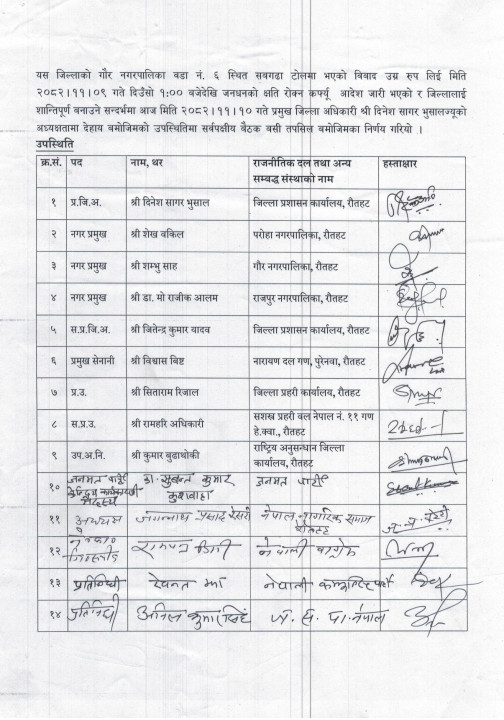 यस जिल्लाको गौर नगरपालिका वडा नं. ६ स्थित सवगढा टोलमा भएको विवाद उग्र रुप लिई मिति
२०८२।११।०९ गते दिउँसो १:०० बजेदेखि जनधनको क्षति रोक्न कर्फ्यू आदेश जारी भएको र जिल्लालाई
शान्तिपूर्ण बनाउने सन्दर्भमा आज मिति २०८२।११।१० गते प्रमुख जिल्ला अधिकारी श्री दिनेश सागर भुसालज्यूको
अध्यक्षतामा देहाय बमोजिमको उपस्थितिमा सर्वपक्षीय बैठक बसी तपसिल बमोजिमका निर्णय गरियो ।
उपस्थिति
क्र.सं. पद नाम, थर राजनीतिक दल तथा अन्य सम्वद्ध संस्थाको नाम हस्ताक्षर
१ प्र.जि.अ. श्री दिनेश सागर भुसाल जिल्ला प्रशासन कार्यालय, रौतहट
२ नगर प्रमुख श्री शेख वकिल परोहा नगरपालिका, रौतहट
३ नगर प्रमुख श्री शम्भु साह गौर नगरपालिका, रौतहट
४ नगर प्रमुख श्री डा. मो राजीक आलम राजपुर नगरपालिका, रौतहट
५ स.प्र.जि.अ. श्री जितेन्द्र कुमार यादव जिल्ला प्रशासन कार्यालय, रौतहट
६ प्रमुख सेनानी श्री विश्वास बिष्ट नारायण दल गण, पुरेनवा, रौतहट
७ प्र.उ. श्री सिताराम रिजाल जिल्ला प्रहरी कार्यालय, रौतहट
८ स.प्र.उ. श्री रामहरि अधिकारी सशस्त्र प्रहरी वल नेपाल नं. ११ गण हे.क्वा., रौतहट
९ उप.अ.नि. श्री कुमार बुढाथोकी राष्ट्रिय अनुसन्धान जिल्ला कार्यालय, रौतहट
१० जनमत पार्टी सदस्य डा. सुवन्त कुमार कुशवाहा जनमत पार्टी
११ अध्यक्ष जगन्नाथ प्रसाद नेपाल नागरिक समाज रौतहट
१२ नेपाली काग्रेस
१३ प्रतिनिधी रेवन्त झा नेपाली कम्युनिष्ट पार्टी
१४ प्रतिनिधी अनिल कुमार सिंह ज. स. पा. नेपाल